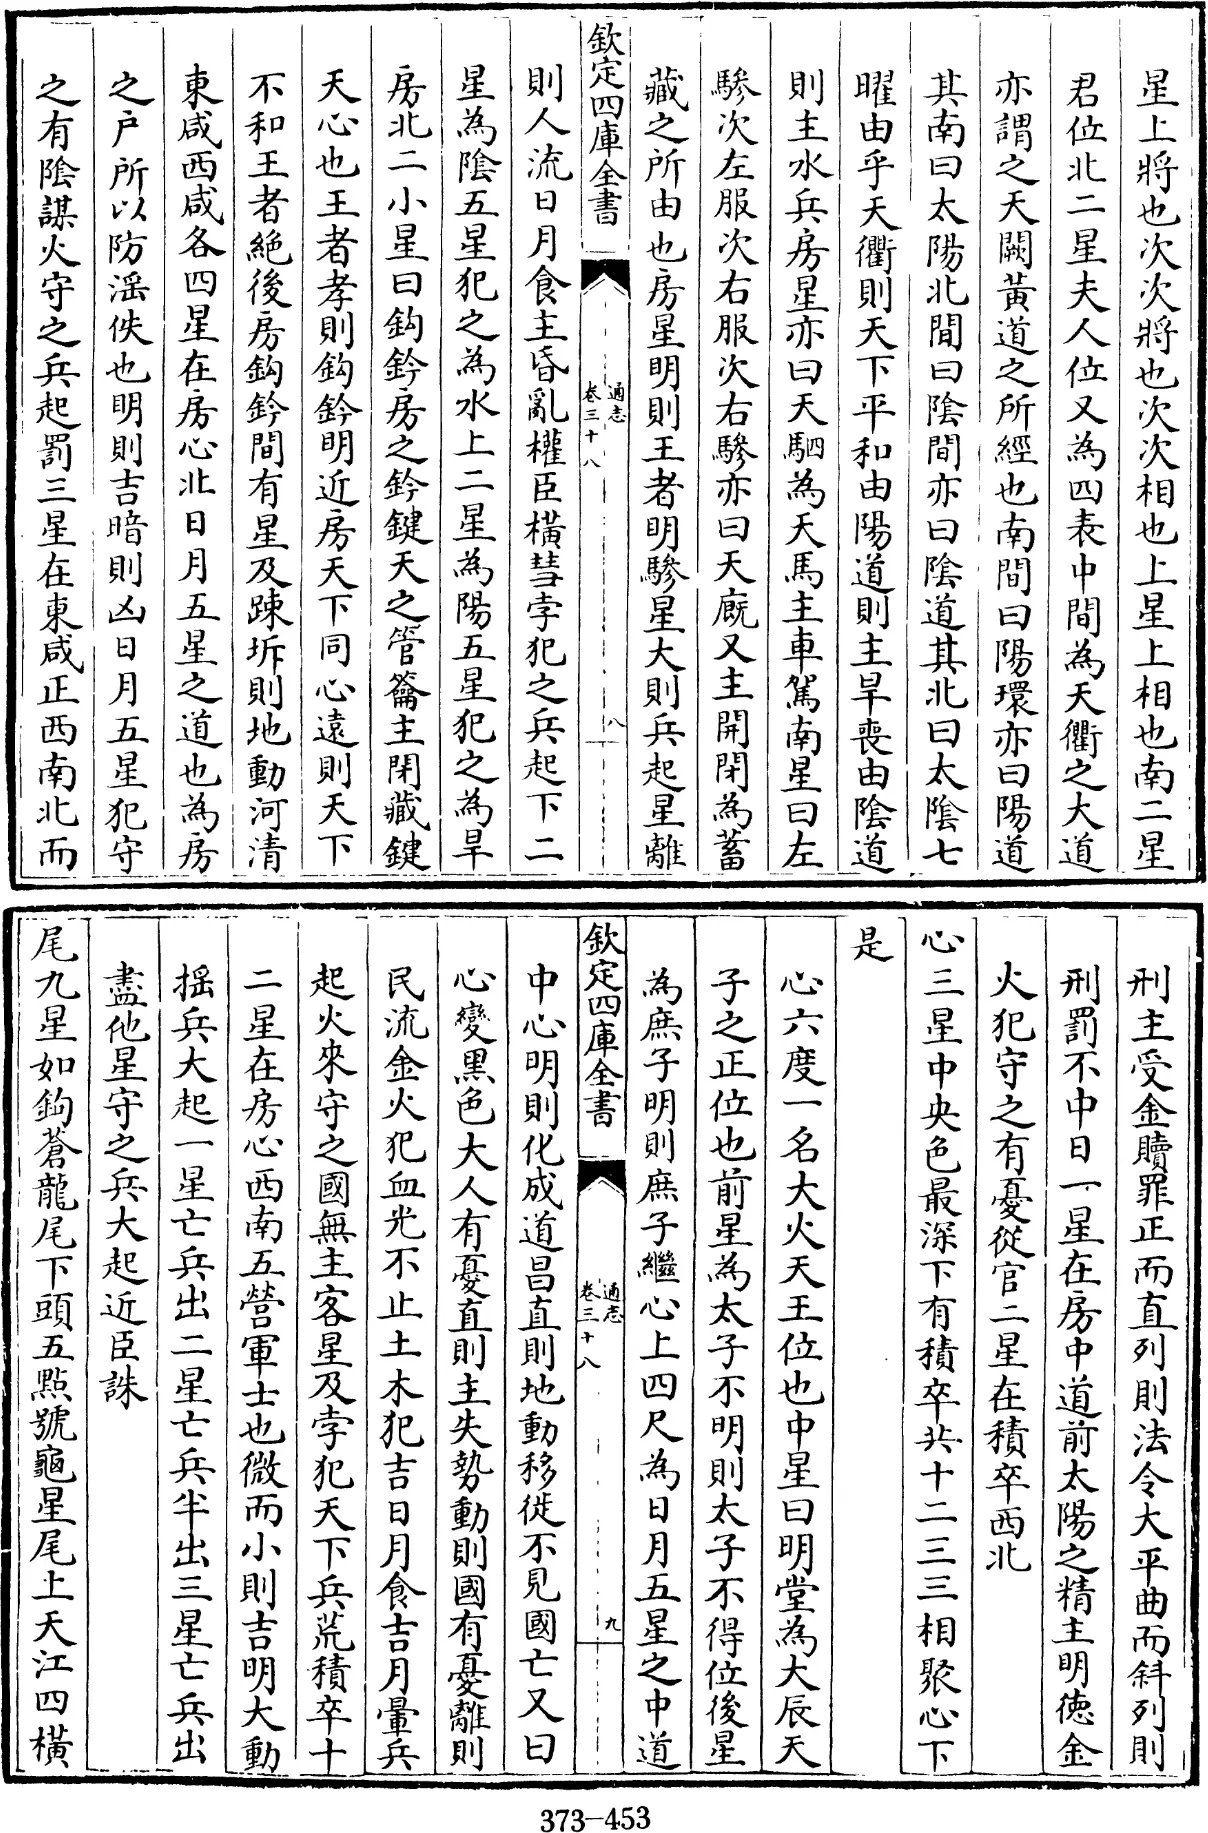 星上將也次次將也次次相也上星上相也南二星
君位北二星夫人位又為四表中間為天衢之大道
亦謂之天闕黃道之所經也南間曰陽環亦曰陽道
其南曰太陽北間曰陰間亦曰陰道其北曰太陰七
曜由乎天衢則天下平和由陽道則主旱喪由陰道
則主水兵房星亦曰天駟為天馬主車駕南星曰左
驂次左服次右服次右驂亦曰天廐又主開閉為蓄
藏之所由也房星明則王者明驂星大則兵起星離
欽定四庫全書
通志
卷三十八
八
則人流日月食主昏亂權臣橫彗孛犯之兵起下二
星為陰五星犯之為水上二星為陽五星犯之為旱
房北二小星曰鈎鈐房之鈐鍵天之管籥主閉藏鍵
天心也王者孝則鈎鈐明近房天下同心遠則天下
不和王者絶後房鈎鈐間有星及踈坼則地動河清
東咸西咸各四星在房心北日月五星之道也為房
之户所以防滛佚也明則吉暗則凶日月五星犯守
之有陰謀火守之兵起罰三星在東咸正西南北而
刑主受金贖罪正而直列則法令大平曲而斜列則
刑罰不中日一星在房中道前太陽之精主明德金
火犯守之有憂從官二星在積卒西北
心三星中央色最深下有積卒共十二三三相聚心下
是
心六度一名大火天王位也中星曰明堂為大辰天
子之正位也前星為太子不明則太子不得位後星
為庶子明則庶子繼心上四尺為日月五星之中道
欽定四庫全書
通志
卷三十八
九
中心明則化成道昌直則地動移徙不見國亡又曰
心變黑色大人有憂直則主失勢動則國有憂離則
民流金火犯血光不止土木犯吉日月食吉月暈兵
起火來守之國無主客星及孛犯天下兵荒積卒十
二星在房心西南五營軍士也微而小則吉明大動
揺兵大起一星亡兵出二星亡兵半出三星亡兵出
盡他星守之兵大起近臣誅
尾九星如鈎蒼龍尾下頭五點號龜星尾上天江四橫
373-453